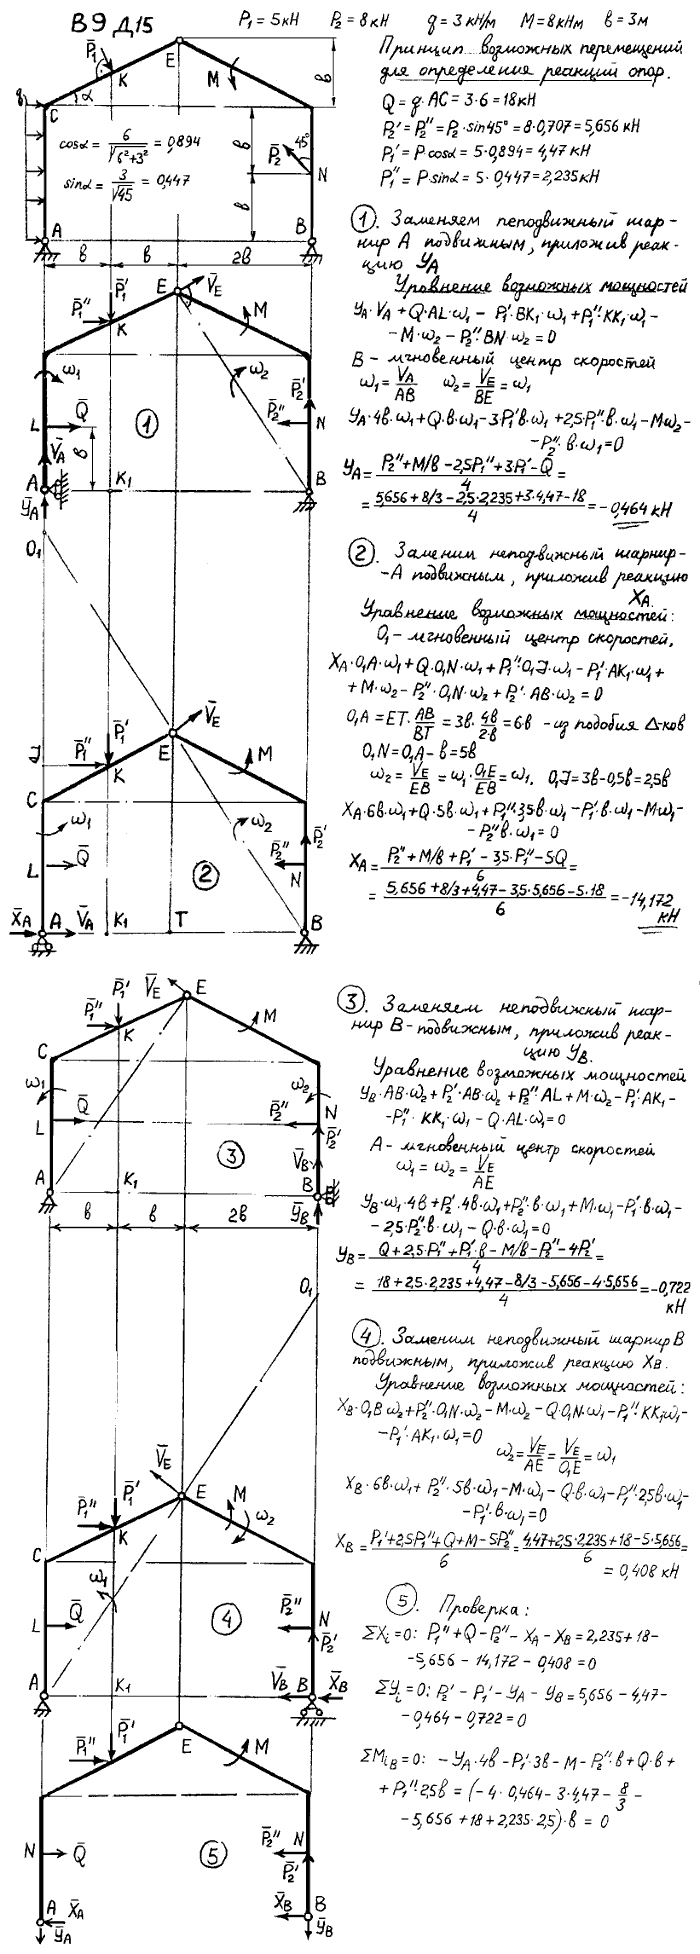 В9 Д15
P₁ = 5кН P₂ = 8кН q = 3кН/м M = 8кНм в = 3м
Принцип возможных перемещений
для определения реакций опор.
Q = q·AC = 3·6 = 18кН
P₂' = P₂'' = P₂·sin45° = 8·0,707 = 5,656 кН
P₁' = P·cosα = 5·0,894 = 4,47 кН
P₁'' = P·sinα = 5·0,447 = 2,235 кН
cosα = 6/√(6²+3²) = 0,894
sinα = 3/√45 = 0,447
q P̄₁ K E M C α 45° P̄₂ N A B в в 2в в в в
① . Заменяем неподвижный шар-
нир А подвижным, приложив реак-
цию Y_A
Уравнение возможных мощностей
Y_A·V_A + Q·AL·ω₁ - P₁'·BK₁·ω₁ + P₁''·KK₁·ω₁ -
- M·ω₂ - P₂''·BN·ω₂ = 0
В - мгновенный центр скоростей
ω₁ = V_A/AB ω₂ = V_E/BE = ω₁
Y_A·4в·ω₁ + Q·в·ω₁ - 3·P₁'в·ω₁ + 2,5·P₁''·в·ω₁ - Mω₂ -
- P₂''·в·ω₁ = 0
Y_A = (P₂'' + M/в - 2,5P₁'' + 3·P₁' - Q)/4 =
= (5,656 + 8/3 - 2,5·2,235 + 3·4,47 - 18)/4 = -0,464 кН
P̄₁'' P̄₁' K E V̄_E M ω₁ ω₂ P̄₂' P̄₂'' N L Q̄ ① V̄_A в A K₁ B Ȳ_A
O₁
② . Заменим неподвижный шарнир-
-А подвижным, приложив реакцию
X_A.
Уравнение возможных мощностей:
O₁ - мгновенный центр скоростей.
X_A·O₁A·ω₁ + Q·O₁N·ω₁ + P₁''·O₁J·ω₁ - P₁'·AK₁·ω₁ +
+ M·ω₂ - P₂''·O₁N·ω₂ + P₂'·AB·ω₂ = 0
O₁A = ET·AB/BT = 3в·4в/2·в = 6в - из подобия Δ-ков
O₁N = O₁A - в = 5в
ω₂ = V_E/EB = ω₁·O₁E/EB = ω₁. O₁J = 3в - 0,5в = 2,5в
X_A·6в·ω₁ + Q·5в·ω₁ + P₁''·3,5в·ω₁ - P₁'·в·ω₁ - Mω₁ -
- P₂''в·ω₁ = 0
X_A = (P₂'' + M/в + P₁' - 3,5·P₁'' - 5Q)/6 =
= (5,656 + 8/3 + 4,47 - 3,5·5,656 - 5·18)/6 = -14,172
кН
J P̄₁'' P̄₁' K E V̄_E M C ω₁ ω₂ P̄₂' P̄₂'' N L Q̄ ② X̄_A A V̄_A K₁ T B
③ . Заменяем неподвижный шар-
нир В - подвижным, приложив реак-
цию Y_B.
Уравнение возможных мощностей
Y_B·AB·ω₂ + P₂'·AB·ω₂ + P₂''·AL + M·ω₂ - P₁'·AK₁ -
- P₁''·KK₁·ω₁ - Q·AL·ω₁ = 0
А - мгновенный центр скоростей
ω₁ = ω₂ = V_E/AE
Y_B·ω₁·4в + P₂'·4в·ω₁ + P₂''·в·ω₁ + M·ω₁ - P₁'·в·ω₁ -
- 2,5·P₂''·в·ω₁ - Q·в·ω₁ = 0
Y_B = (Q + 2,5·P₁'' + P₁'·в - M/в - P₂'' - 4P₂')/4 =
= (18 + 2,5·2,235 + 4,47 - 8/3 - 5,656 - 4·5,656)/4 = -0,722
кН
P̄₁'' P̄₁' K V̄_E E M C ω₁ ω₂ N P̄₂'' P̄₂' L Q̄ ③ V̄_B A K₁ B Ȳ_B в в 2в
O₁
④ . Заменим неподвижный шарнир В
подвижным, приложив реакцию X_B.
Уравнение возможных мощностей:
X_B·O₁B·ω₂ + P₂''·O₁N·ω₂ - M·ω₂ - Q·O₁N·ω₁ - P₁''·KK₁·ω₁ -
- P₁'·AK₁·ω₁ = 0
ω₂ = V_E/AE = V_E/O₁E = ω₁
X_B·6в·ω₁ + P₂''·5в·ω₁ - M·ω₁ - Q·в·ω₁ - P₁''·2,5в·ω₁ -
- P₁'·в·ω₁ = 0
X_B = (P₁' + 2,5P₁'' + Q + M - 5P₂'')/6 = (4,47 + 2,5·2,235 + 18 - 5·5,656)/6 =
= 0,408 кН
P̄₁'' P̄₁' K V̄_E E M ω₂ C ω₁ L Q̄ ④ P̄₂'' N P̄₂' A K₁ V̄_B B X̄_B
⑤ . Проверка:
ΣX_i = 0: P₁'' + Q - P₂'' - X_A - X_B = 2,235 + 18 -
- 5,656 - 14,172 - 0,408 = 0
ΣY_i = 0: P₂' - P₁' - Y_A - Y_B = 5,656 - 4,47 -
- 0,464 - 0,722 = 0
ΣM_iB = 0: - Y_A·4в - P₁'·3в - M - P₂''·в + Q·в +
+ P₁''·2,5в = (-4·0,464 - 3·4,47 - 8/3 -
- 5,656 + 18 + 2,235·2,5)·в = 0
P̄₁'' P̄₁' E M N Q̄ ⑤ P̄₂'' N P̄₂' A X̄_A Ȳ_A X̄_B B Ȳ_B